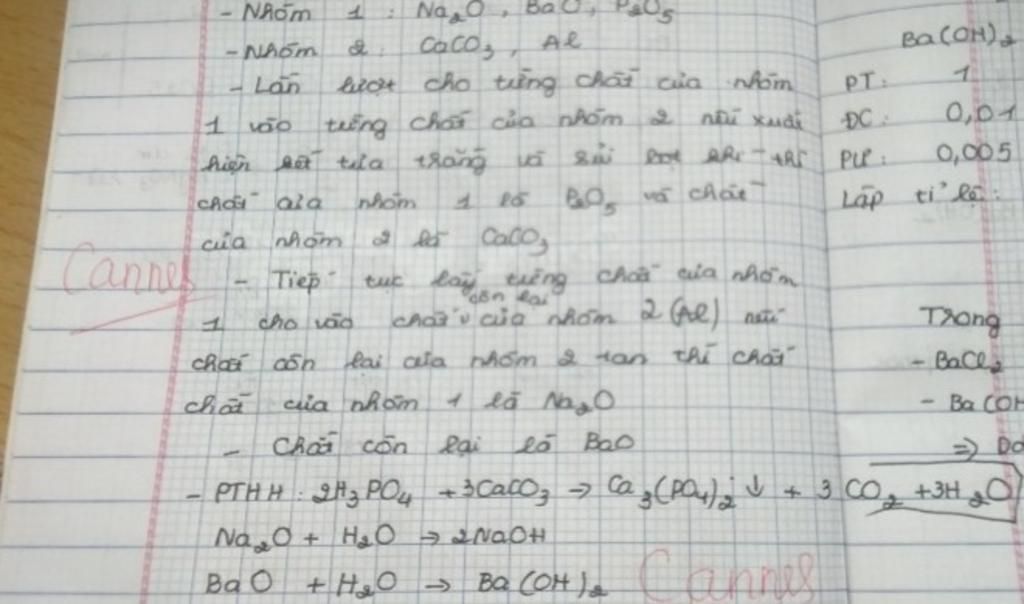 - Nhóm 1 : Na2O, BaO, P2O5
- Nhóm 2 : CaCO3, Al
- Lần lượt cho từng chất của nhóm
1 vào từng chất của nhóm 2 nếu xuất
hiện kết tủa trắng và sủi thì
chất của nhóm 1 là P2O5 và chất
của nhóm 2 là CaCO3
Cannes
- Tiếp tục lấy từng chất của nhóm
còn lại
1 cho vào chất của nhóm 2 (Al) nếu
chất còn lại của nhóm 2 tan thì chất
chất của nhóm 1 là Na2O
- Chất còn lại là BaO
- PTHH : 2H3PO4 + 3CaCO3 → Ca3(PO4)2 ↓ + 3CO2 + 3H2O
Na2O + H2O → 2NaOH
BaO + H2O → Ba(OH)2
Cannes
Ba(OH)2
PT: 1
ĐC: 0,01
PƯ: 0,005
Lập tỉ lệ:
Trong
- BaCl2
- Ba(OH
⇒ Do